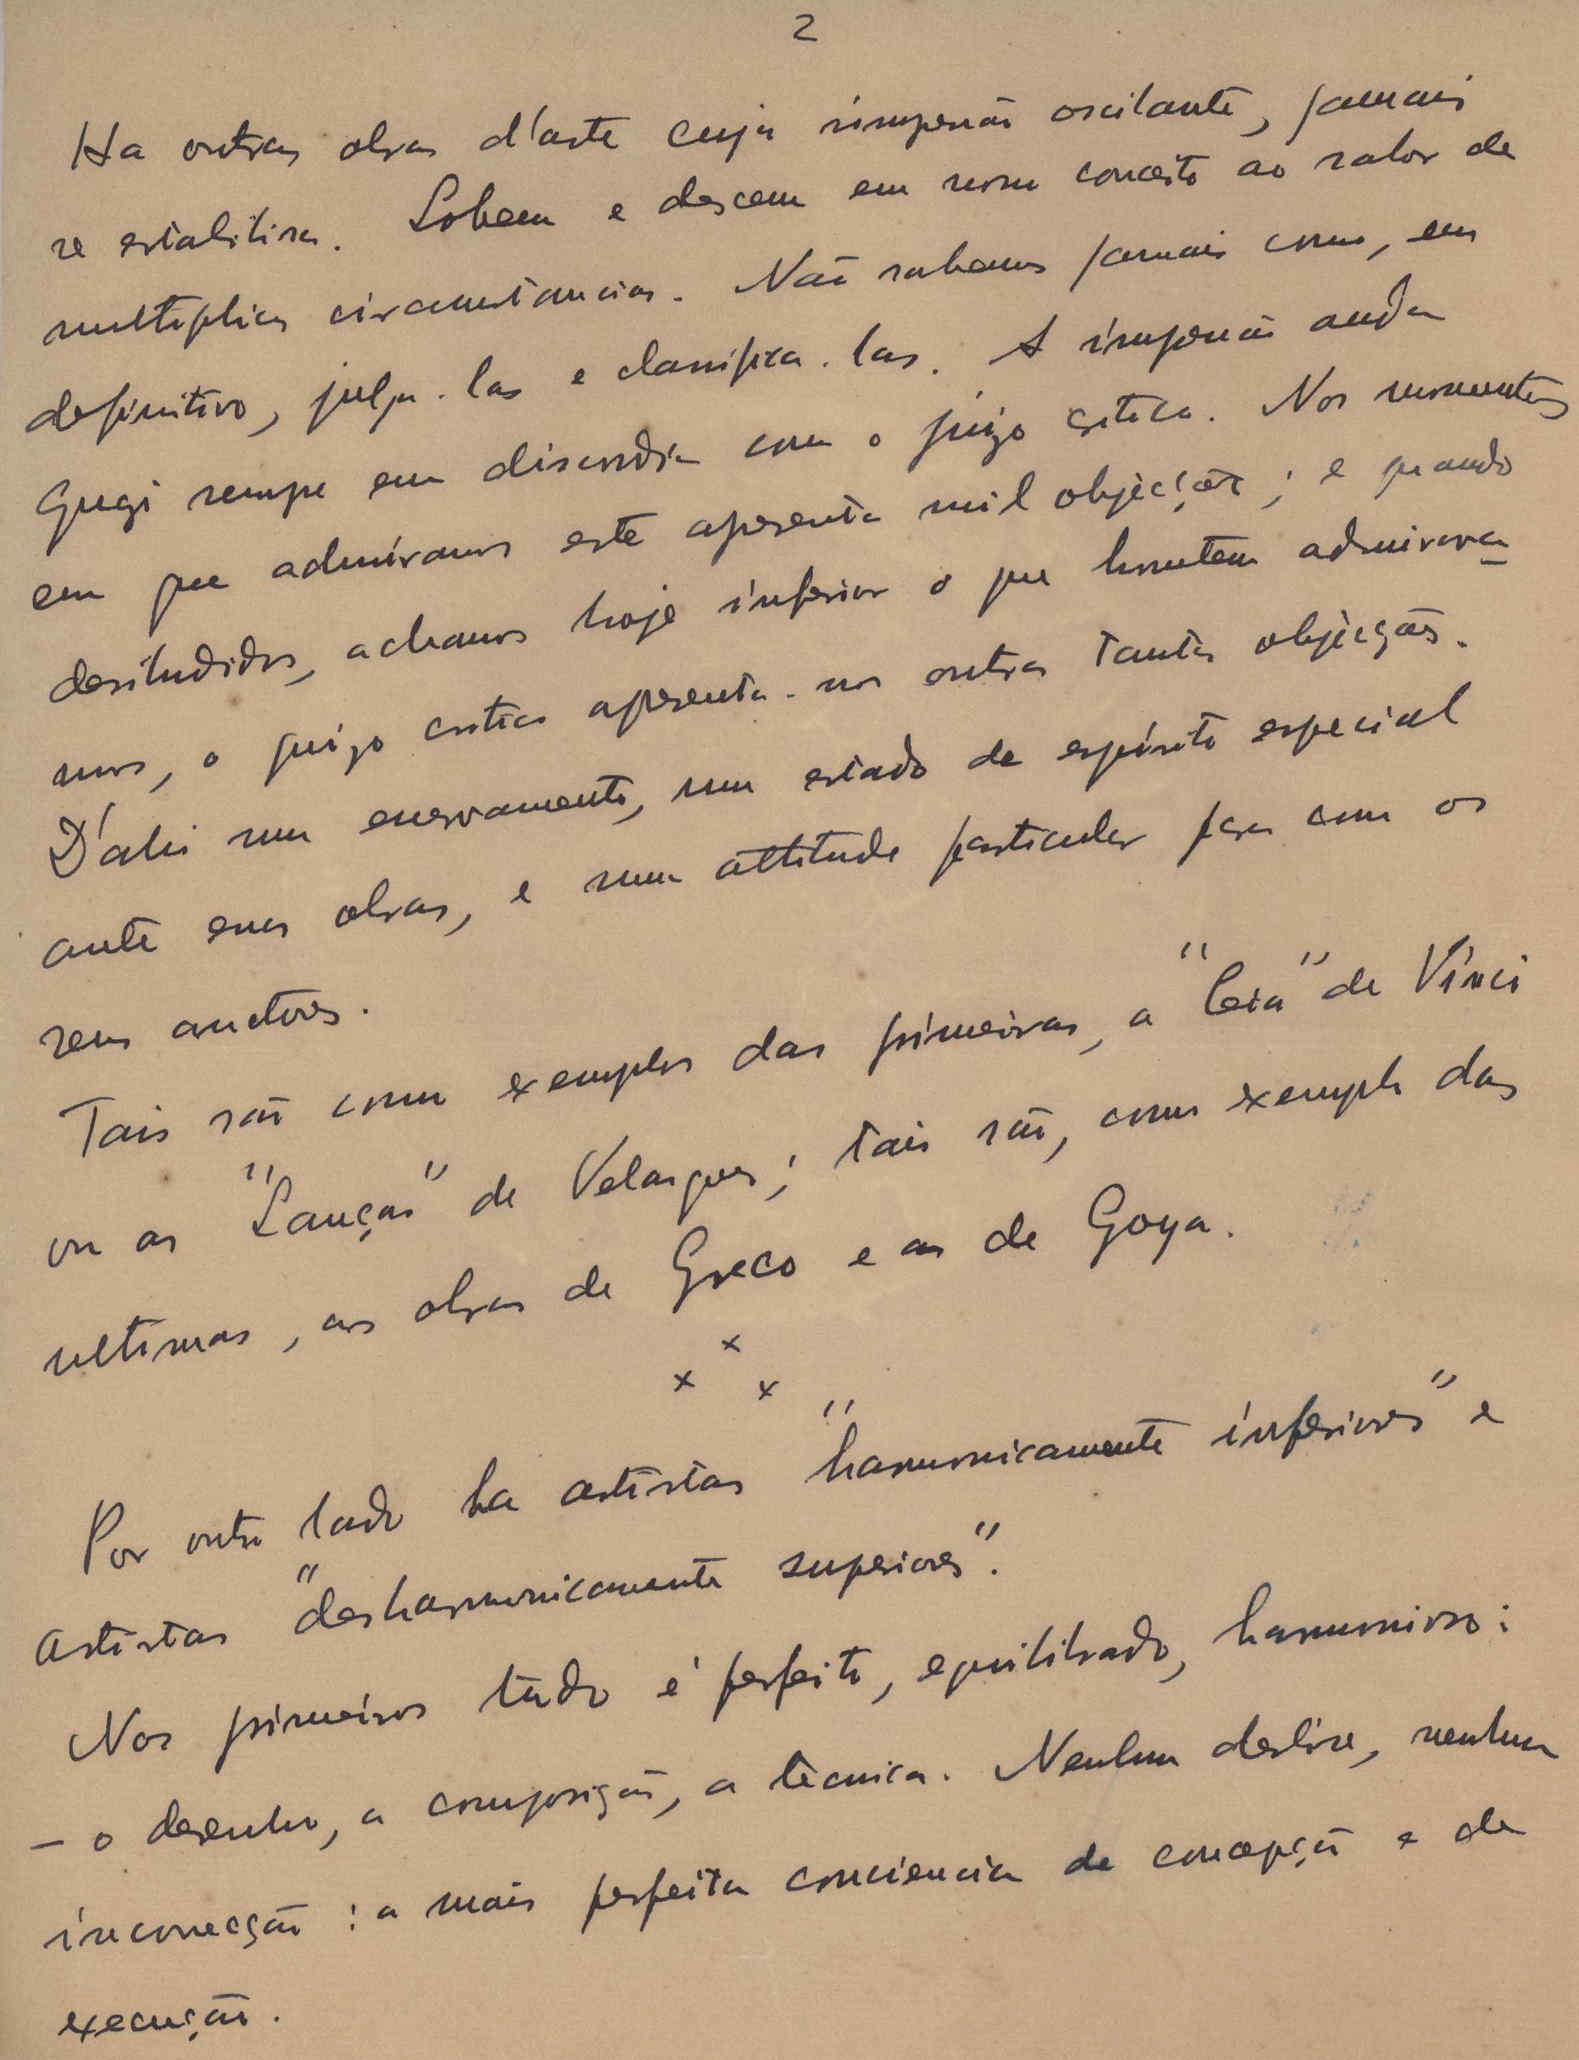 2
Ha outras obras d'arte cuja impressão oscilante, jamais
se estabilisa. Sobem e descem em nosso conceito ao sabor de
multiplicas circumstancias. Não sabemos jamais como, em
definitivo, julga-las e classifica-las. A impressão anda
quasi sempre em discordia com o juizo critico. Nos momentos
em que admiramos este apresenta mil objecções; e quando
desiludidos, achamos hoje inferior o que hontem admirava
mos, o juizo critico apresenta-nos outras tantas objecções.
D'ahi um enervamento, um estado de espirito especial
ante essas obras, e uma attitude particular para com os
seus auctores.
Tais são como exemplos das primeiras, a "Ceia" de Vinci
ou as "Lanças" de Velasques; tais são, como exemplo das
ultimas, as obras de Greco e as de Goya.
x
x x
Por outro lado ha artistas "harmonicamente inferiores" e
artistas "desharmonicamente superiores".
Nos primeiros tudo é perfeito, equilibrado, harmonioso:
- o desenho, a composição, a tecnica. Nenhum deslise, nenhuma
incorrecção: a mais perfeita consciencia de concepção e de
execução.